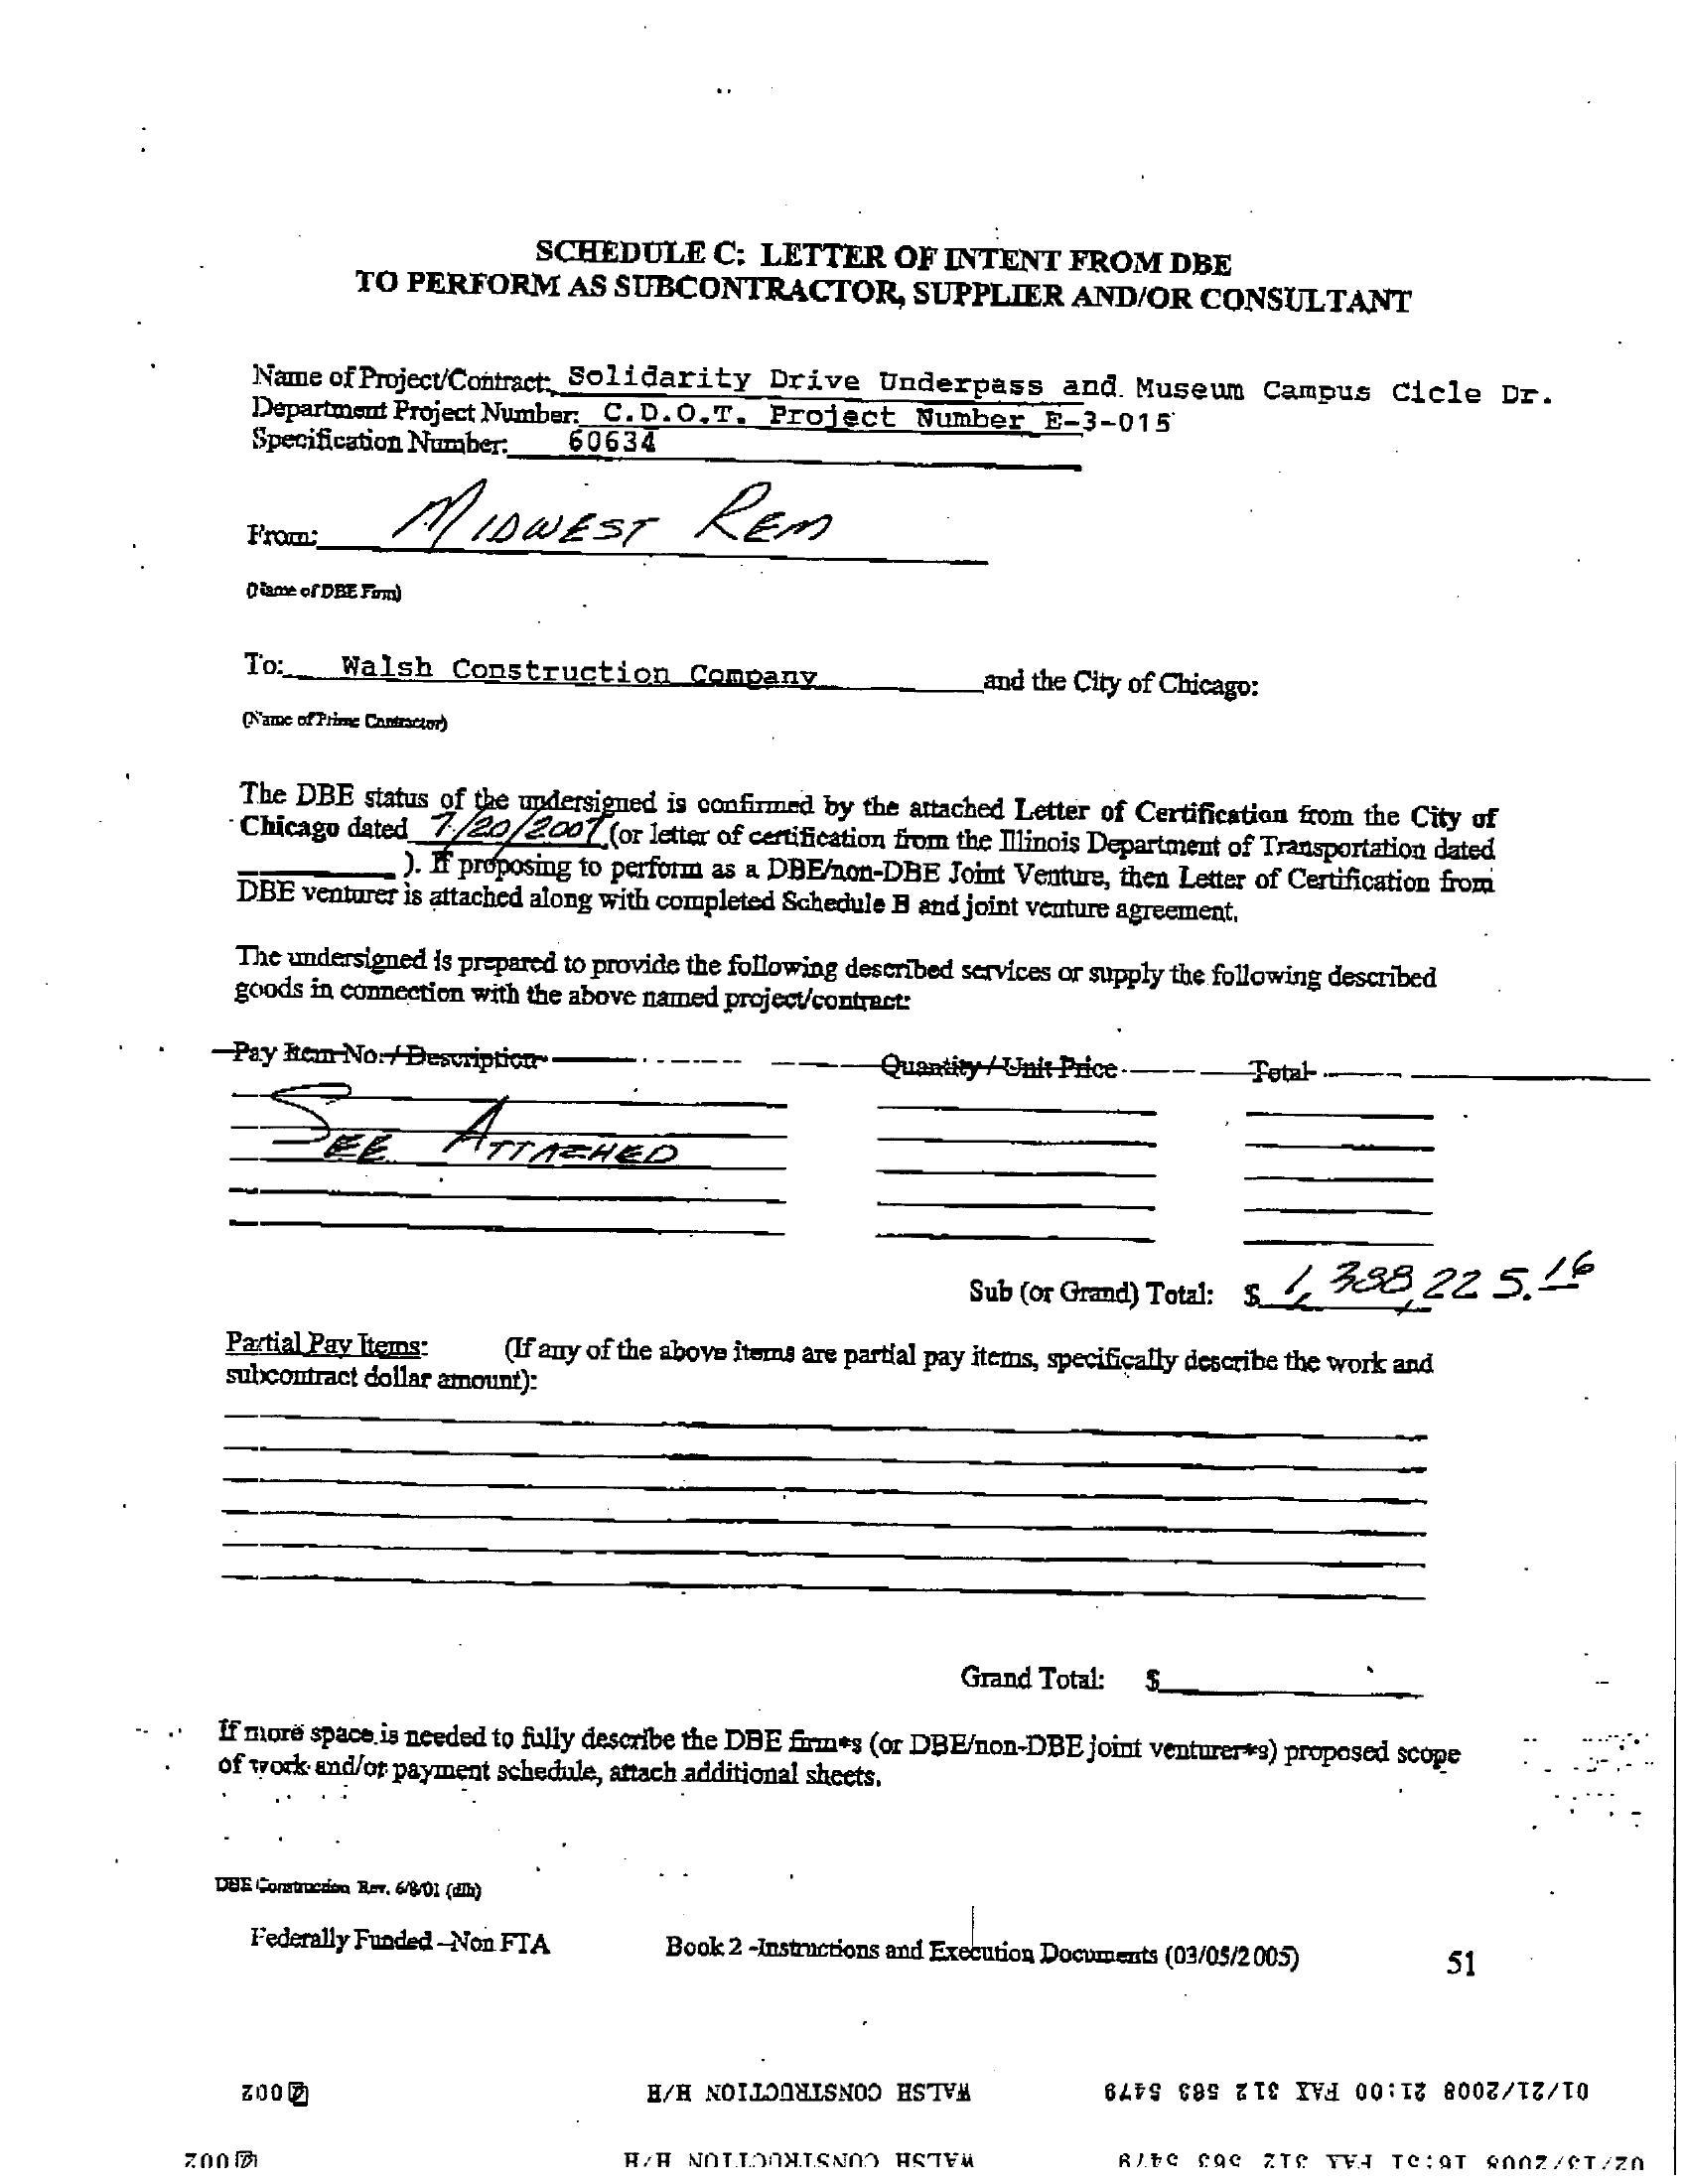 SCHEDULE C: LETTER OF INTENT FROM DBE
TO PERFORM AS SUBCONTRACTOR, SUPPLIER AND/OR CONSULTANT
Name of Project/Contract: Solidarity Drive Underpass and Museum Campus Cicle Dr.
Department Project Number: C.D.O.T. Project Number E-3-015
Specification Number: 60634
From: MIDWEST REM
(Name of DBE Firm)
To: Walsh Construction Company and the City of Chicago:
(Name of Prime Contractor)
The DBE status of the undersigned is confirmed by the attached Letter of Certification from the City of
Chicago dated 7/20/2007 (or letter of certification from the Illinois Department of Transportation dated
). If proposing to perform as a DBE/non-DBE Joint Venture, then Letter of Certification from
DBE venturer is attached along with completed Schedule B and joint venture agreement.
The undersigned is prepared to provide the following described services or supply the following described
goods in connection with the above named project/contract:
Pay Item No. / Description Quantity / Unit Price Total
SEE ATTACHED
Sub (or Grand) Total: $ 1,388,225.16
Partial Pay Items: (If any of the above items are partial pay items, specifically describe the work and
subcontract dollar amount):
Grand Total: $
If more space is needed to fully describe the DBE firm*s (or DBE/non-DBE joint venturer*s) proposed scope
of work and/or payment schedule, attach additional sheets.
DBE Construction Rev. 6/8/01 (dlh)
Federally Funded –Non FTA Book 2 -Instructions and Execution Documents (03/05/2005) 51
01/21/2008 21:00 FAX 312 563 5479 WALSH CONSTRUCTION H/H 002
02/13/2008 16:51 FAX 312 563 5479 WALSH CONSTRUCTION H/H 002